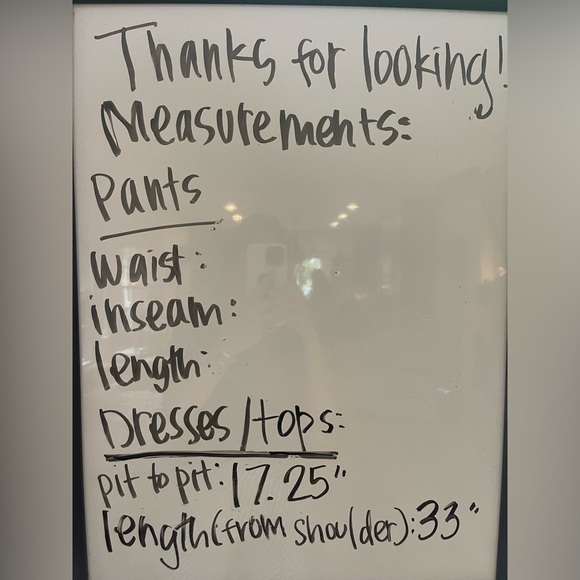 Thanks for looking!
Measurements:
Pants
waist:
inseam:
length:
Dresses/tops:
pit to pit: 17.25"
length(from shoulder): 33"